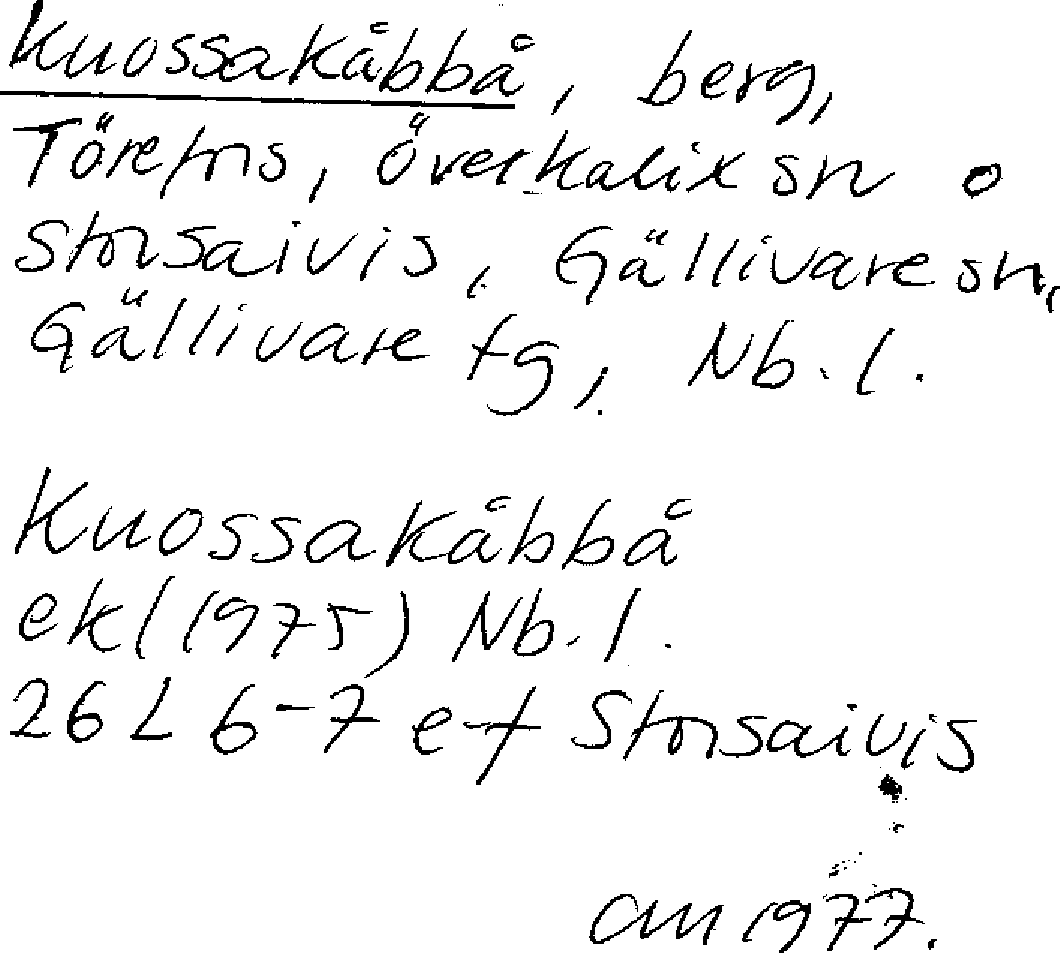 Kuossakåbbå, berg,
Törefors, Överkalix sn o
Storsaivis, Gällivare sn,
Gällivare tg, Nb. l.
Kuossakåbbå
ek (1975) Nb. l.
26 L 6-7 e-f Storsaivis
1977.